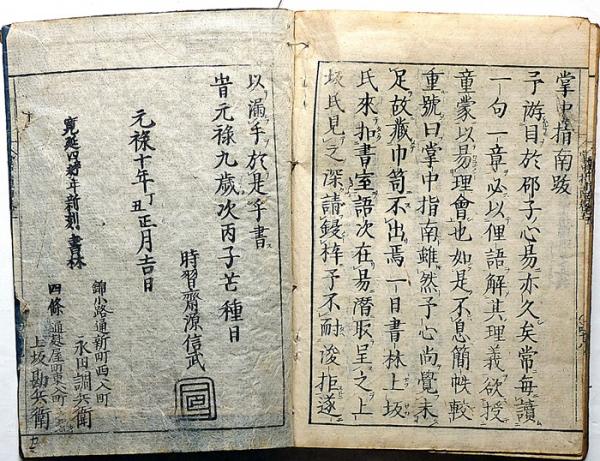 掌中指南跋
予游目於邵子心易亦久矣常毎讀
一句一章必以俚語解其理義欲授
童蒙以易理會也如是不息簡帙較
重號曰掌中指南雖然予心尚覺未
足故藏巾笥不出焉一日書林上坂
氏來扣書室語次在易潛取呈之上
坂氏見之深請鋟梓予不耐浚拒遂
以滿乎於是乎書
旹元祿九歳次丙子芒種日
時習齋源信武
元祿十年丁丑正月吉日
寛延四辛未年新刻書林
錦小路通新町西入町
永田調兵衛
四條通
上坂勘兵衛